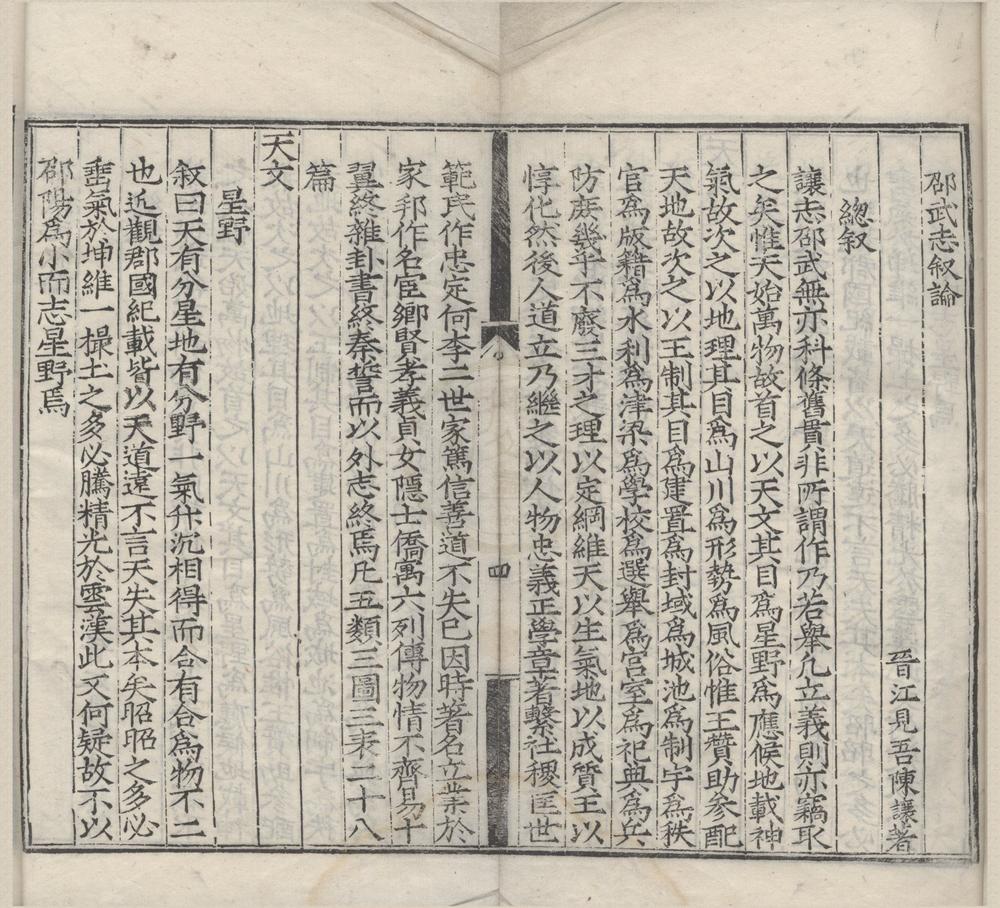 邵武志叙論
晉江見吾陳讓著
總叙
讓志邵武無亦科條舊貫非所謂作乃若舉凡立義則亦竊取
之矣惟天始萬物故首之以天文其目爲星野爲應候地載神
氣故次之以地理其目爲山川爲形勢爲風俗惟王贊助參配
天地故次之以王制其目爲建置爲封域爲城池爲制宇爲秩
官爲版籍爲水利爲津梁爲學校爲選舉爲宮室爲祀典爲兵
防庶幾乎不廢三才之理以定綱維天以生氣地以成質主以
惇化然後人道立乃繼之以人物忠義正學章著繫社稷匡世
四
範民作忠定何李二世家篤信善道不失巳因時著名立業於
家邦作名宦鄉賢孝義貞女隱士僑寓六列傳物情不齊易十
翼終雜卦書終秦誓而以外志終焉凡五類三圖三表二十八
篇
天文
星野
叙曰天有分星地有分野一氣升沉相得而合有合爲物不二
也近觀郡國紀載皆以天道遠不言天失其本矣昭昭之多必
垂氣於坤維一撮土之多必騰精光於雲漢此又何疑故不以
邵陽爲小而志星野焉